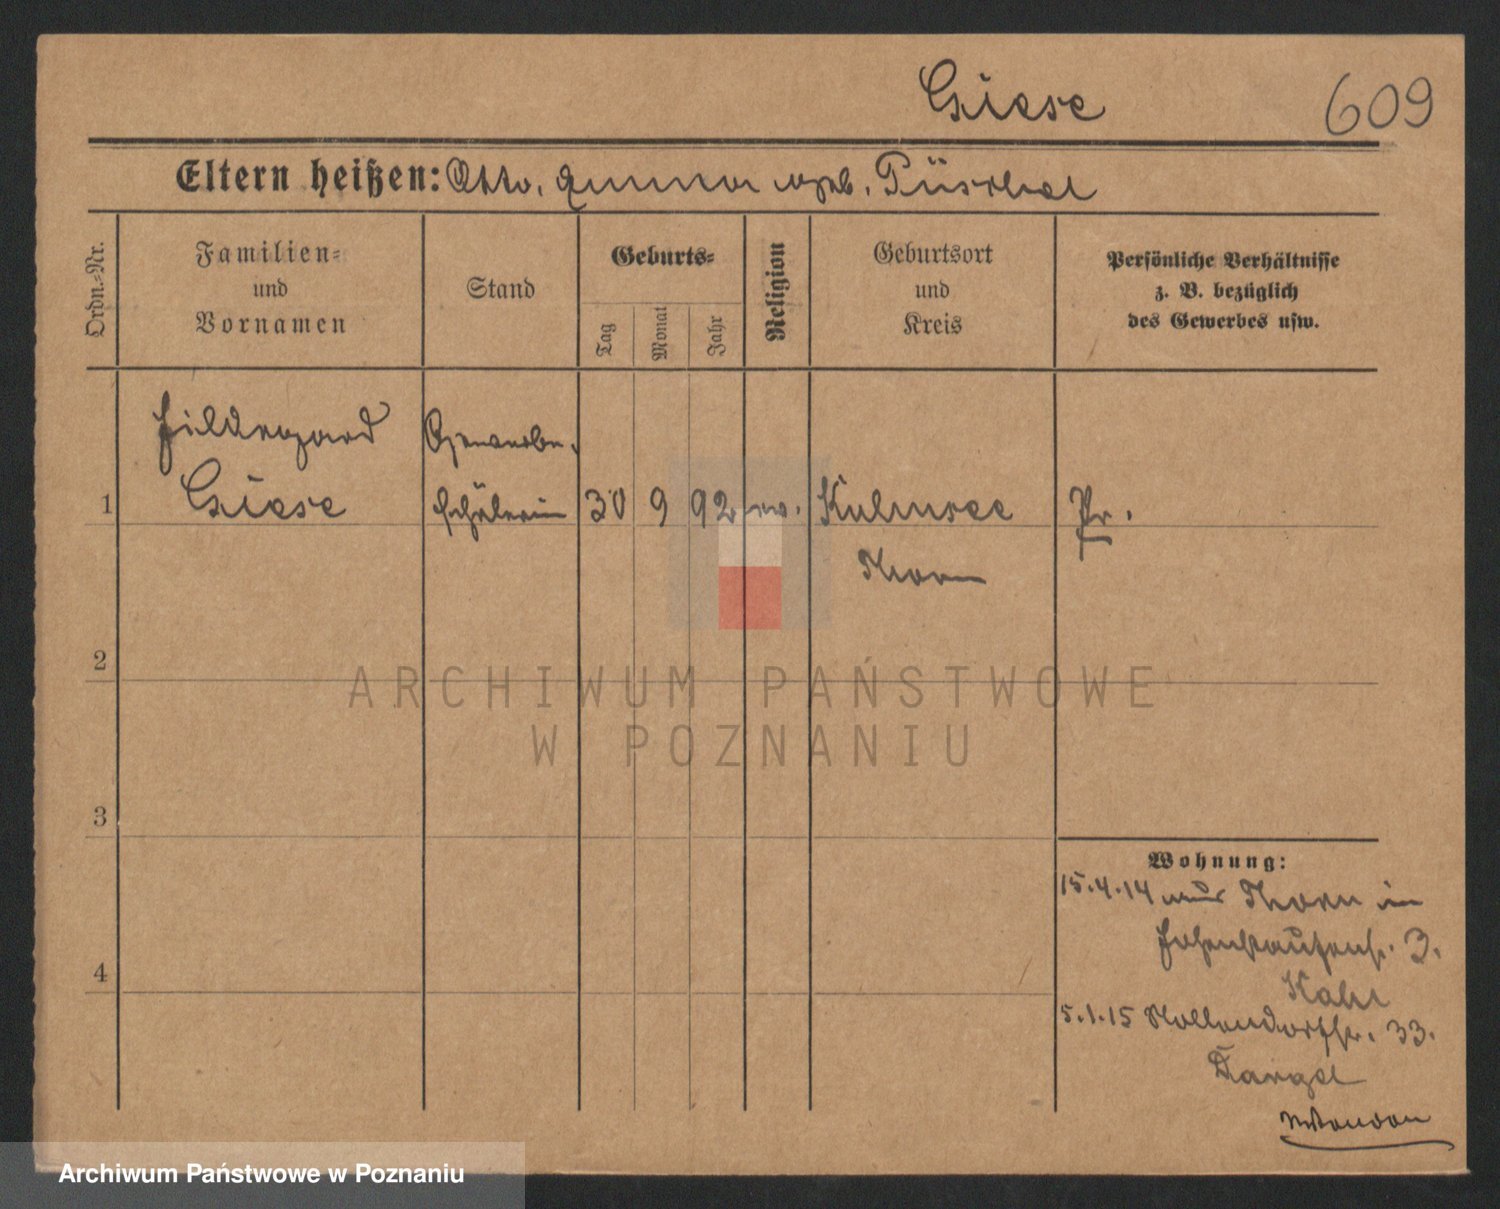 Giese 609
Eltern heißen: Otto, Emma geb. Püschel
Ordn.-Nr.
Familien- und Vornamen
Stand
Geburts-
Tag
Monat
Jahr
Religion
Geburtsort und Kreis
Persönliche Verhältnisse
z. B. bezüglich
des Gewerbes usw.
Hildegard Gewerbe-
1 Giese schülerin 30 9 92 ev. Kulmsee Pr.
Thorn
2
ARCHIWUM PAŃSTWOWE
W POZNANIU
3
Wohnung:
15.4.14 aus Thorn in
Hohenstaufenstr. 3.
4
5.1.15 Nollendorfstr. 33.
Archiwum Państwowe w Poznaniu